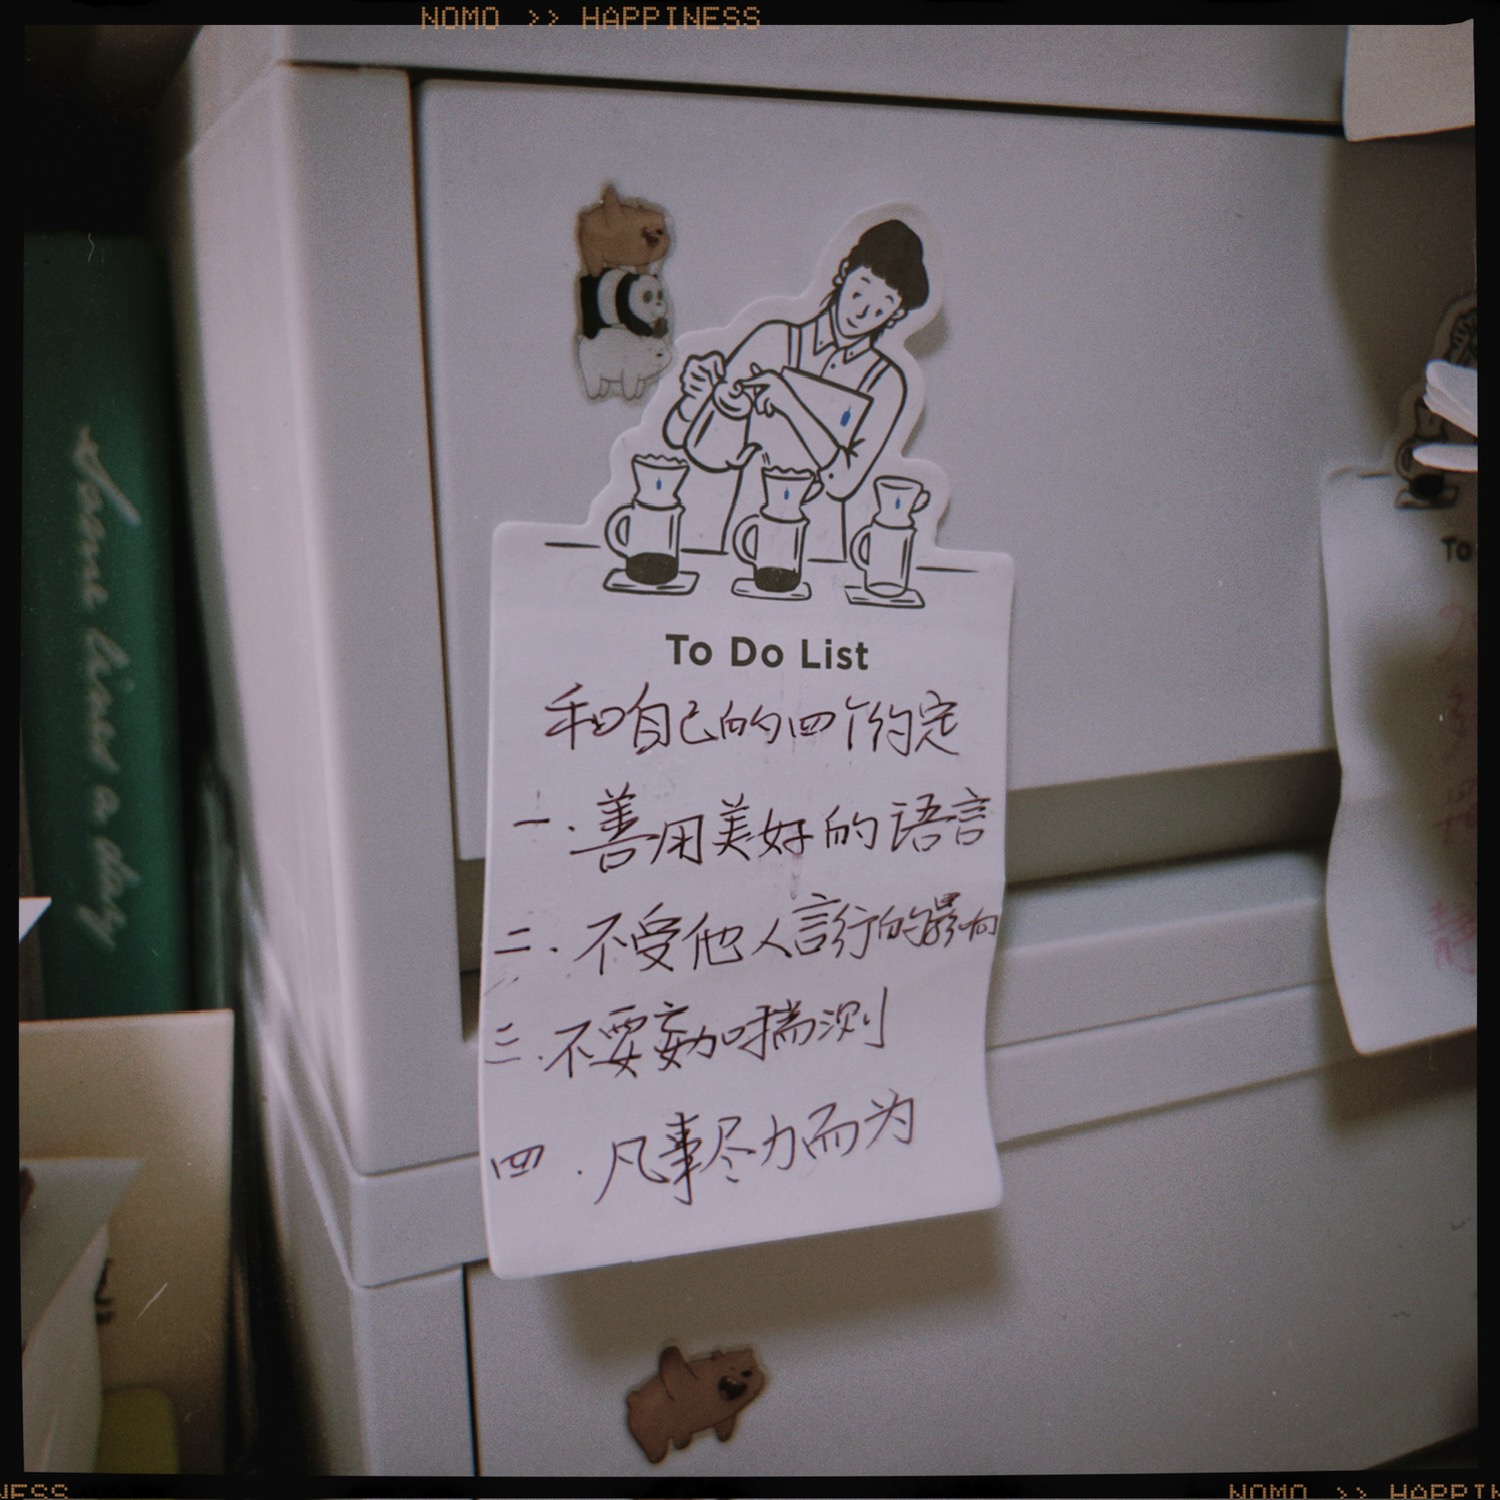 NOMO >> HAPPINESS
Some lines a day
To Do List
和自己的四个约定
一.善用美好的语言
二.不受他人言行的影响
三.不要妄加喘测
四.凡事尽力而为
To
NESS
NOMO >> HAPPIN